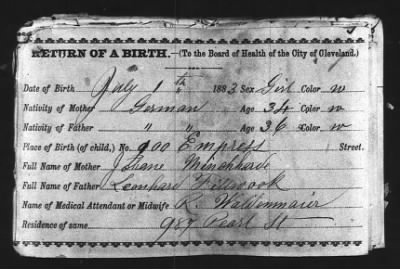 RETURN OF A BIRTH.—(To the Board of Health of the City of Cleveland.)
Date of Birth July 1th " 1883 Sex Girl Color w
Nativity of Mother German Age 34 Color w
Nativity of Father " " Age 36 Color w
Place of Birth (of child,) No. 900 Empress Street.
Full Name of Mother
Full Name of Father Leonhard
Name of Medical Attendant or Midwife R. Waldenmaier
Residence of same 987 Pearl St